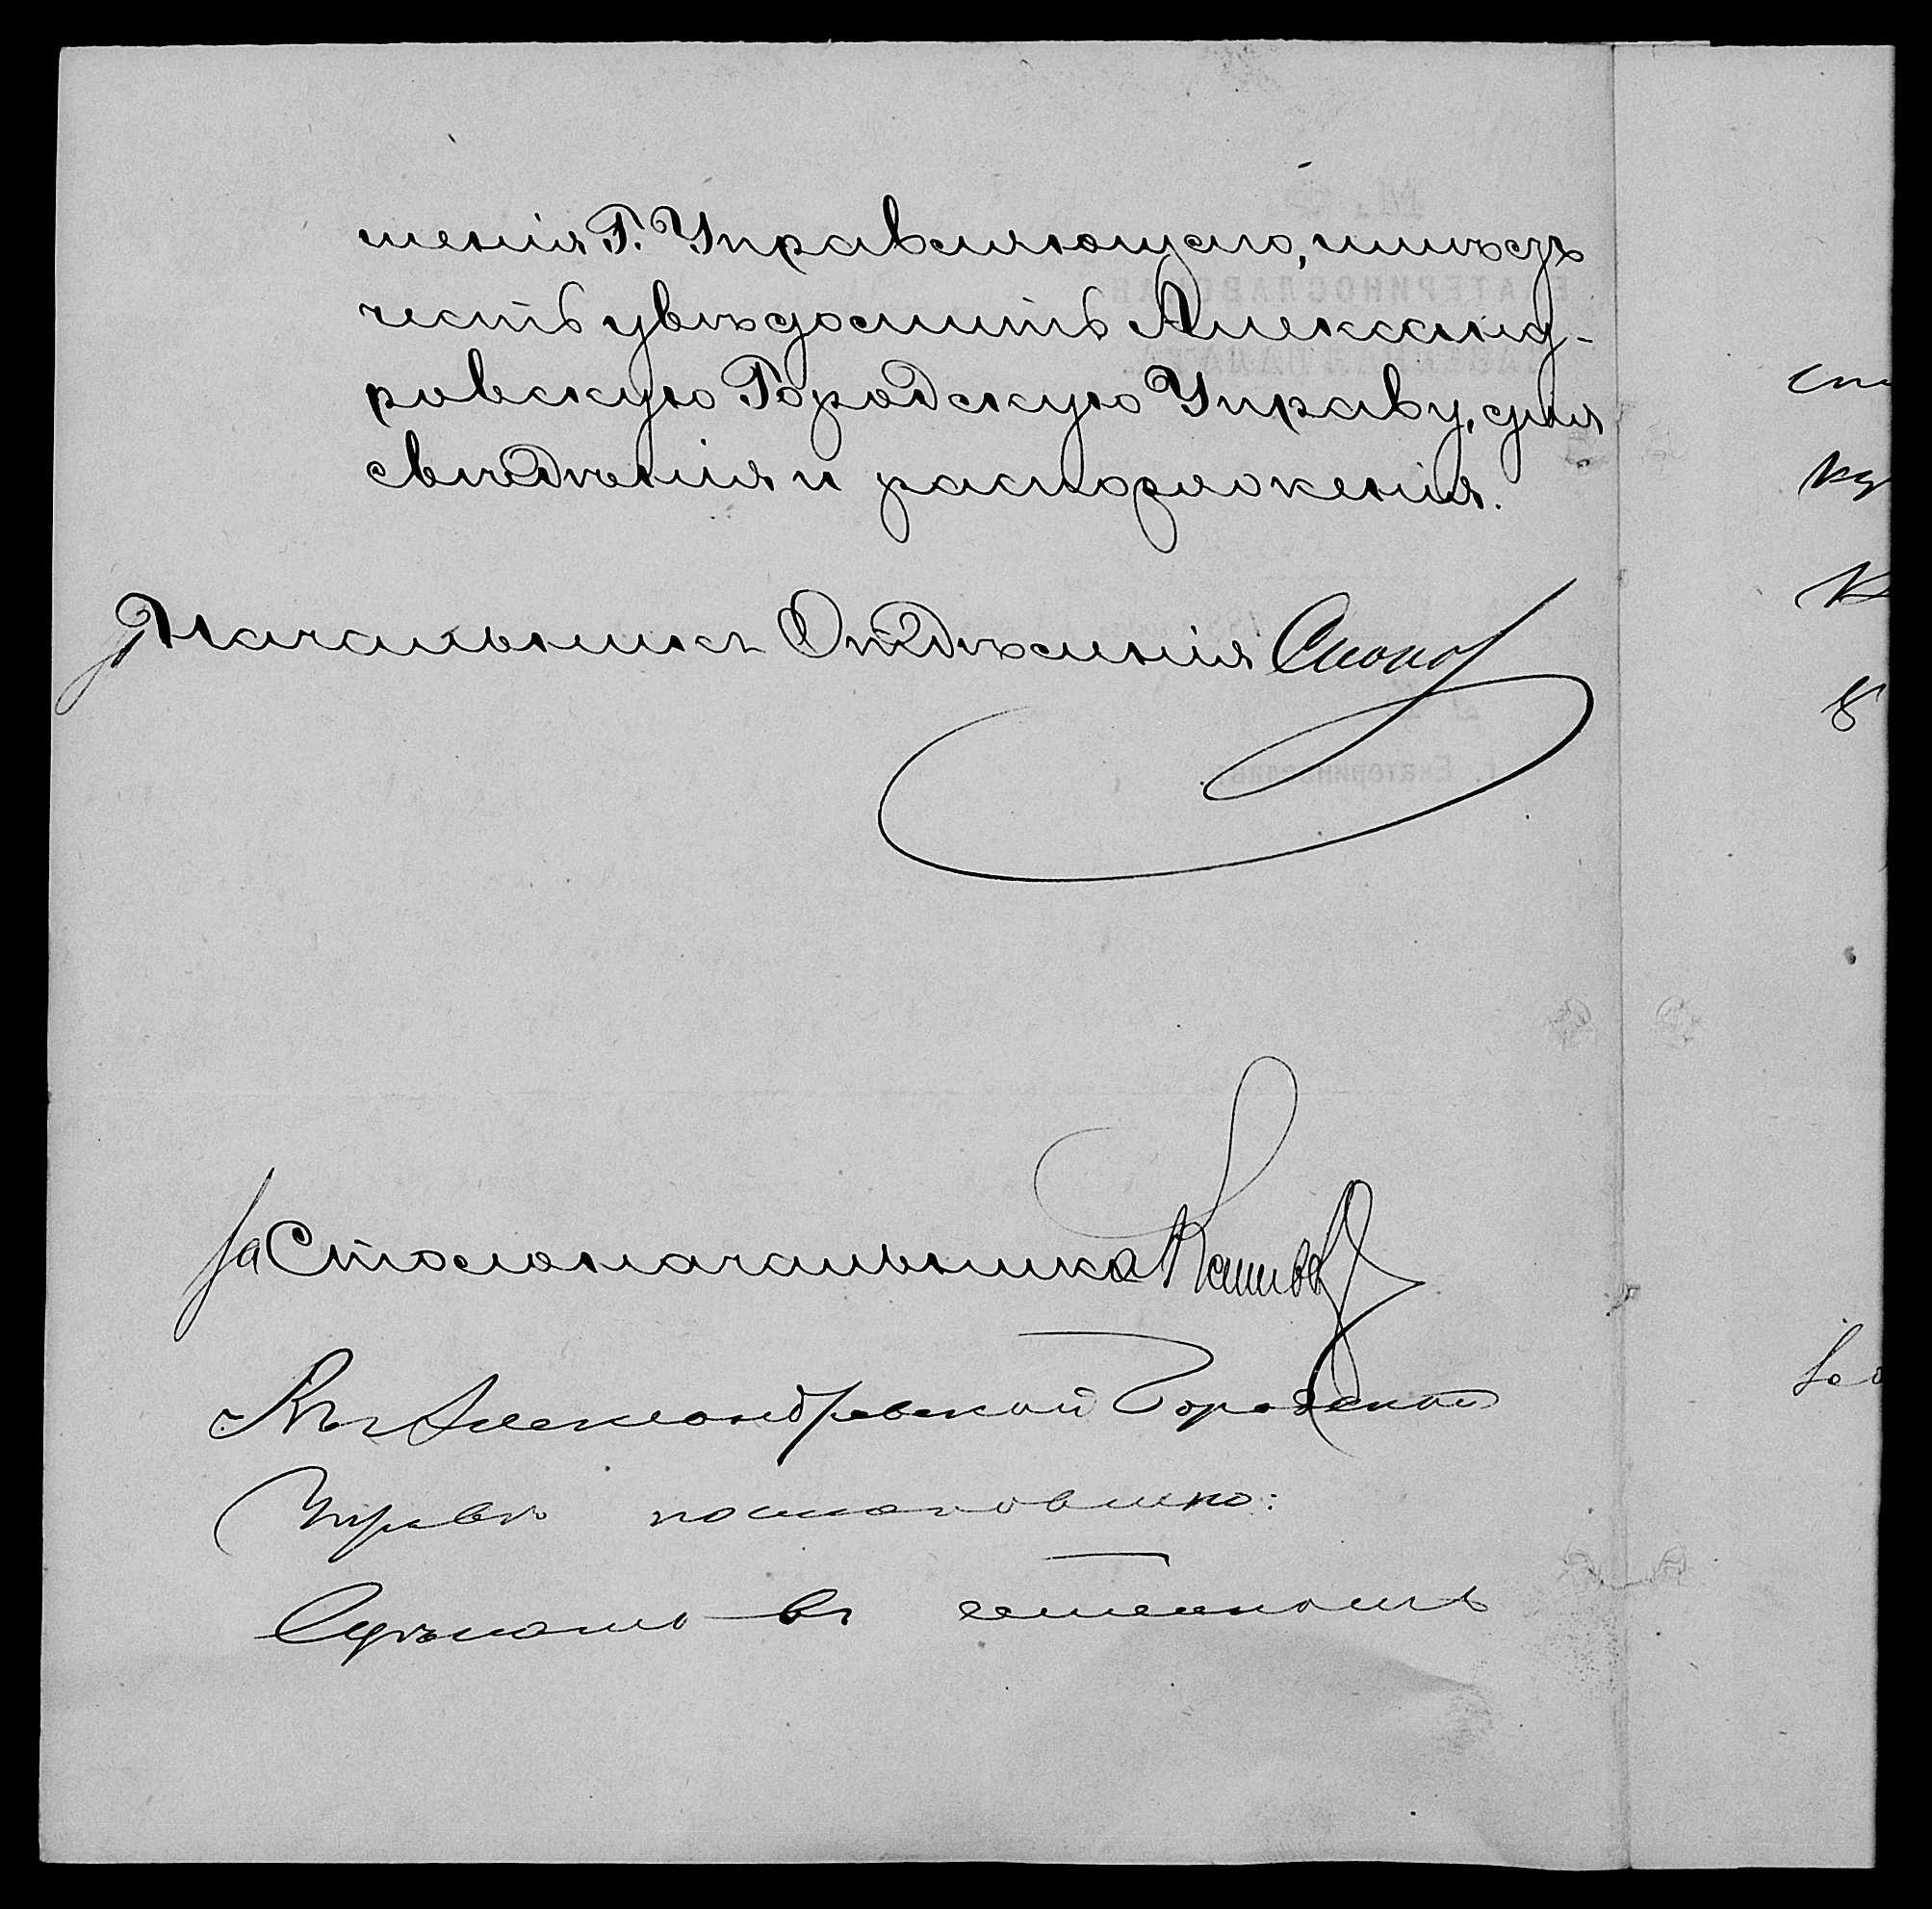 шенія Г. Управляющаго, имѣетъ
честь увѣдомить Александ-
ровскую Городскую Управу, для
свѣдѣнія и распоряженія.
Начальникъ Отдѣленія
за Столоначальника
Въ Александровской Городской
Управѣ постановлено:
Сдѣлать въ